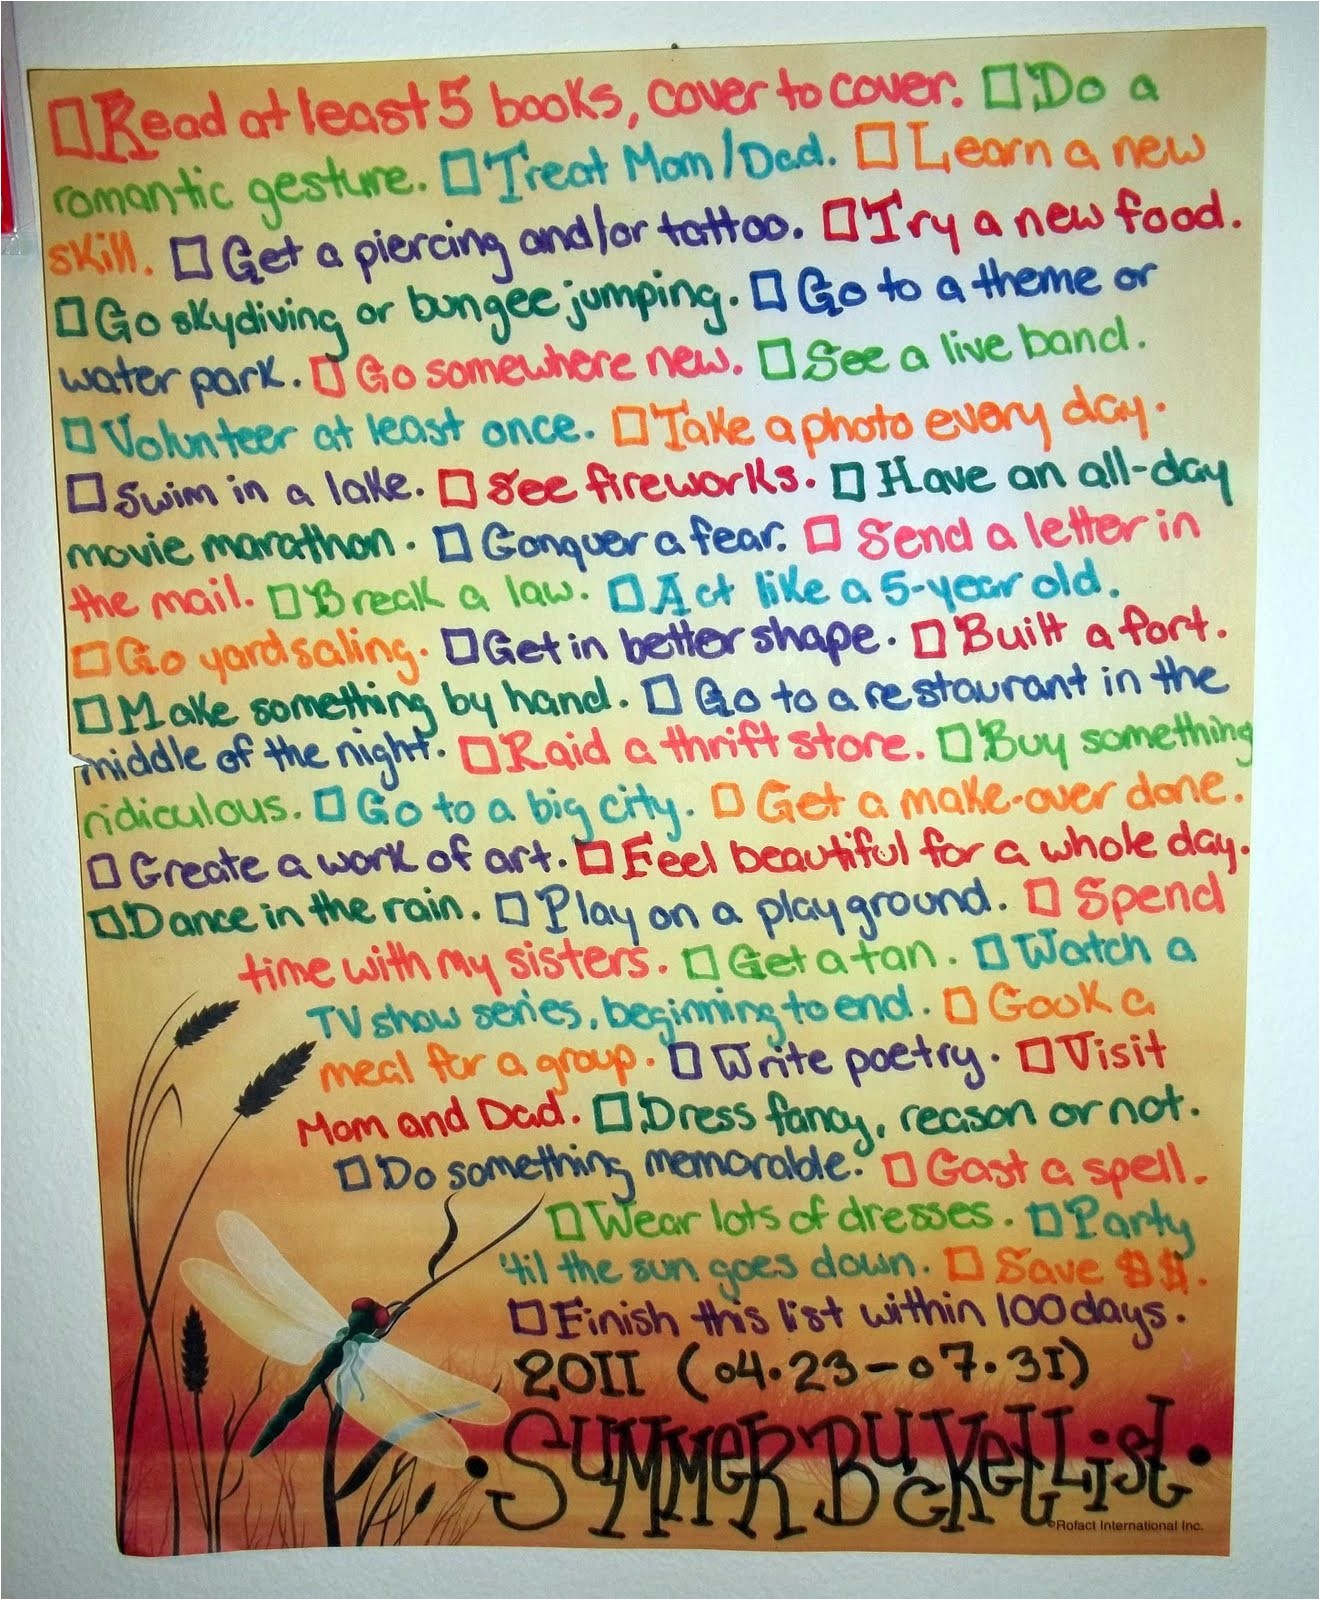 □ Read at least 5 books, cover to cover. □ Do a
romantic gesture. □ Treat Mom/Dad. □ Learn a new
skill. □ Get a piercing and/or tattoo. □ Try a new food.
□ Go skydiving or bungee jumping. □ Go to a theme or
water park. □ Go somewhere new. □ See a live band.
□ Volunteer at least once. □ Take a photo every day.
□ Swim in a lake. □ See fireworks. □ Have an all-day
movie marathon. □ Conquer a fear. □ Send a letter in
the mail. □ Break a law. □ Act like a 5-year old.
□ Go yardsaling. □ Get in better shape. □ Built a fort.
□ Make something by hand. □ Go to a restaurant in the
middle of the night. □ Raid a thrift store. □ Buy something
ridiculous. □ Go to a big city. □ Get a make-over done.
□ Create a work of art. □ Feel beautiful for a whole day.
□ Dance in the rain. □ Play on a playground. □ Spend
time with my sisters. □ Get a tan. □ Watch a
TV show series, beginning to end. □ Cook a
meal for a group. □ Write poetry. □ Visit
Mom and Dad. □ Dress fancy, reason or not.
□ Do something memorable. □ Cast a spell.
□ Wear lots of dresses. □ Party
'til the sun goes down. □ Save $$.
□ Finish this list within 100 days.
2011 (04.23-07.31)
• SUMMER BUCKET LIST •
©Rofact International Inc.